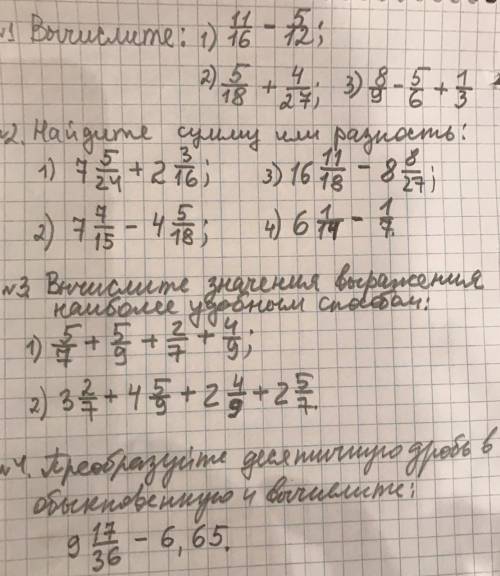 №1 Вычислите: 1) 11/16 − 5/12;
2) 5/18 + 4/27; 3) 8/9 − 5/6 + 1/3
№2. Найдите сумму или разность:
1) 7 5/24 + 2 3/16; 3) 16 11/18 − 8 8/27;
2) 7 7/15 − 4 5/18; 4) 6 1/14 − 1/7.
№3 Вычислите значения выражения
наиболее удобным способом:
1) 5/7 + 5/9 + 2/7 + 4/9;
2) 3 2/7 + 4 5/9 + 2 4/9 + 2 5/7.
№4. Преобразуйте десятичную дробь в
обыкновенную и вычислите:
9 17/36 − 6,65.